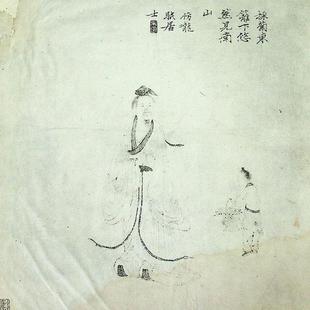 採菊東
籬下悠
然見南
山
仿龍
眠居
士